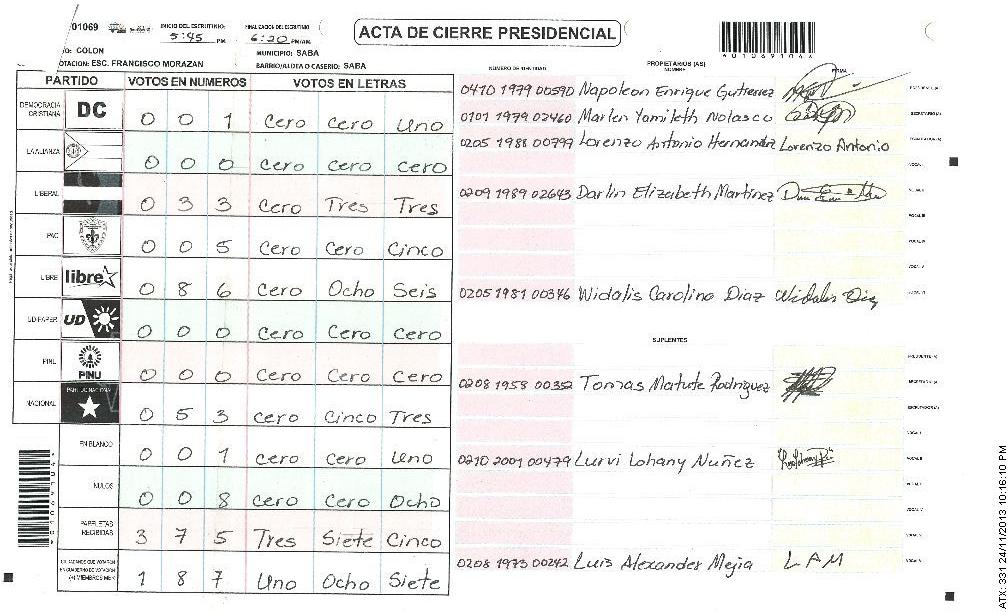 01069 INICIO DEL ESCRUTINIO: 5:45 PM FINALIZACION DEL ESCRUTINIO 6:20 PM/AM
ACTA DE CIERRE PRESIDENCIAL
O: COLON MUNICIPIO: SABA
OTACION: ESC. FRANCISCO MORAZAN BARRIO/ALDEA O CASERIO: SABA
PARTIDO VOTOS EN NUMEROS VOTOS EN LETRAS
DEMOCRACIA CRISTIANA DC 0 0 1 Cero Cero Uno
LA ALIANZA 0 0 0 Cero Cero Cero
LIBERAL 0 3 3 Cero Tres Tres
PAC 0 0 5 Cero Cero Cinco
LIBRE libre 0 8 6 Cero Ocho Seis
UD/FAPER UD 0 0 0 Cero Cero Cero
PINU PINU 0 0 0 Cero Cero Cero
NACIONAL PARTIDO NACIONAL 0 5 3 Cero Cinco Tres
EN BLANCO 0 0 1 Cero Cero Uno
NULOS 0 0 8 Cero Cero Ocho
PAPELETAS RECIBIDAS 3 7 5 Tres Siete Cinco
CIUDADANOS QUE VOTARON EN CUADERNO DE VOTACION (+) MIEMBROS MER 1 8 7 Uno Ocho Siete
NUMERO DE IDENTIDAD PROPIETARIOS (AS) NOMBRE FIRMA
0410 1979 00590 Napoleon Enrique Gutierrez
0101 1979 02460 Marlen Yamileth Nolasco
0205 1988 00799 Lorenzo Antonio Hernandz Lorenzo Antonio
0209 1989 02643 Darlin Elizabeth Martinez
0205 1981 00346 Widalis Carolina Diaz Widalis Diaz
SUPLENTES
0208 1958 00352 Tomas Matute Rodriguez
0210 2001 00479 Lurvi Lohany Nuñez
0208 1973 00242 Luis Alexander Mejia L A M
ATX: 331 24/11/2013 10:16:10 PM